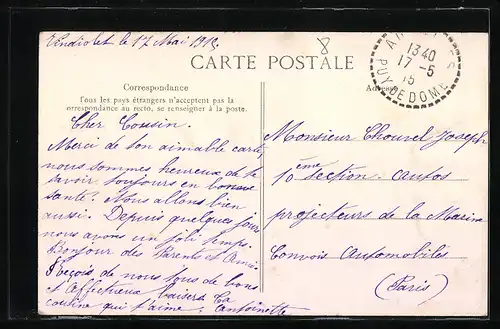 le 17 Mai 1915.
8
CARTE POSTALE
1340
17-5
15
PUY DE DOME
Correspondance
Tous les pays étrangers n'acceptent pas la
correspondance au recto, se renseigner à la poste.
Cher Cousin.
Merci de ton aimable carte,
nous sommes heureux de te
savoir toujours en bonne
santé. Nous allons bien
aussi. Depuis quelques jours
nous avons un joli temps.
Bonjour des Parents et Amis.
Reçois de nous tous de bons
et affectueux baisers Ta
cousine qui t'aime. Antoinette
Monsieur Chouvel Joseph
10ème section autos
projecteurs de la Marine
Convois Automobiles
(Paris)